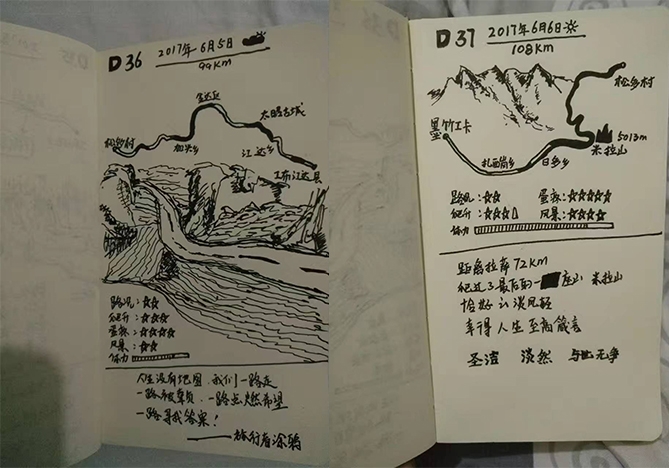 D 36 2017年6月5日
99KM
金达丘
太昭古城
松多村
加兴乡
江达乡
工布江达县
路况:☆☆
爬升:☆☆☆☆
蛋疼:☆☆☆☆
风景:☆☆
体力
人生没有地图 我们一路走
一路被辜负 一路点燃希望
一路寻找答案!
——旅行者涂鸦
D 37 2017年6月6日
108km
松多村
墨竹工卡
5013m
米拉山
扎西岗乡
日多乡
路况:☆☆
蛋疼:☆☆☆☆☆
爬升:☆☆☆
风景:☆☆☆☆
体力
距离拉萨72KM
爬过了最后的一座山 米拉山
恰如云淡风轻
幸得人生至高箴言
淡然 与世无争